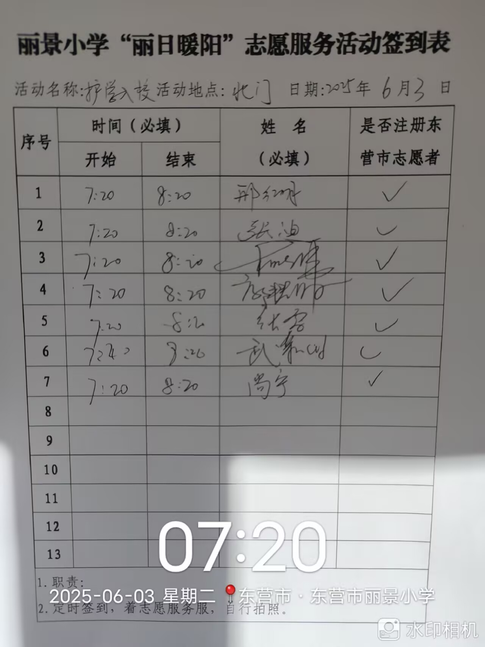 丽景小学“丽日暖阳”志愿服务活动签到表
活动名称:护学入校 活动地点: 北门 日期:2025年 6月3日
序号 时间（必填） 姓 名（必填） 是否注册东营市志愿者
开始 结束
1 7:20 8:20 ✓
2 7:20 8:20 张迪 ✓
3 7:20 8:20 ✓
4 7:20 8:20 ✓
5 7:20 8:2 张雪 ✓
6 8:20 ✓
7 7:20 8:20 尚宁 ✓
8
9
10
11
12
13
07:20
1.职责:
2025-06-03 星期二 东营市·东营市丽景小学
2.定时签到，着志愿服务服，自行拍照。
水印相机